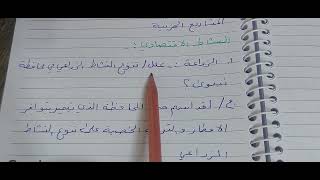 المشاريع الحربية
النشاط الاقتصادي :-
١. الزراعة :- علل / تنوع النشاط الزراعي في محافظة
نينوى ؟
ج / لقد اسم هذه المحافظة الذي تميز بتوافر
الامطار والتربة الخصبة على تنوع النشاط
الزراعي